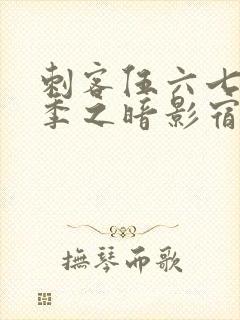 刺客伍六七
季之暗影宿
撫琴而歌